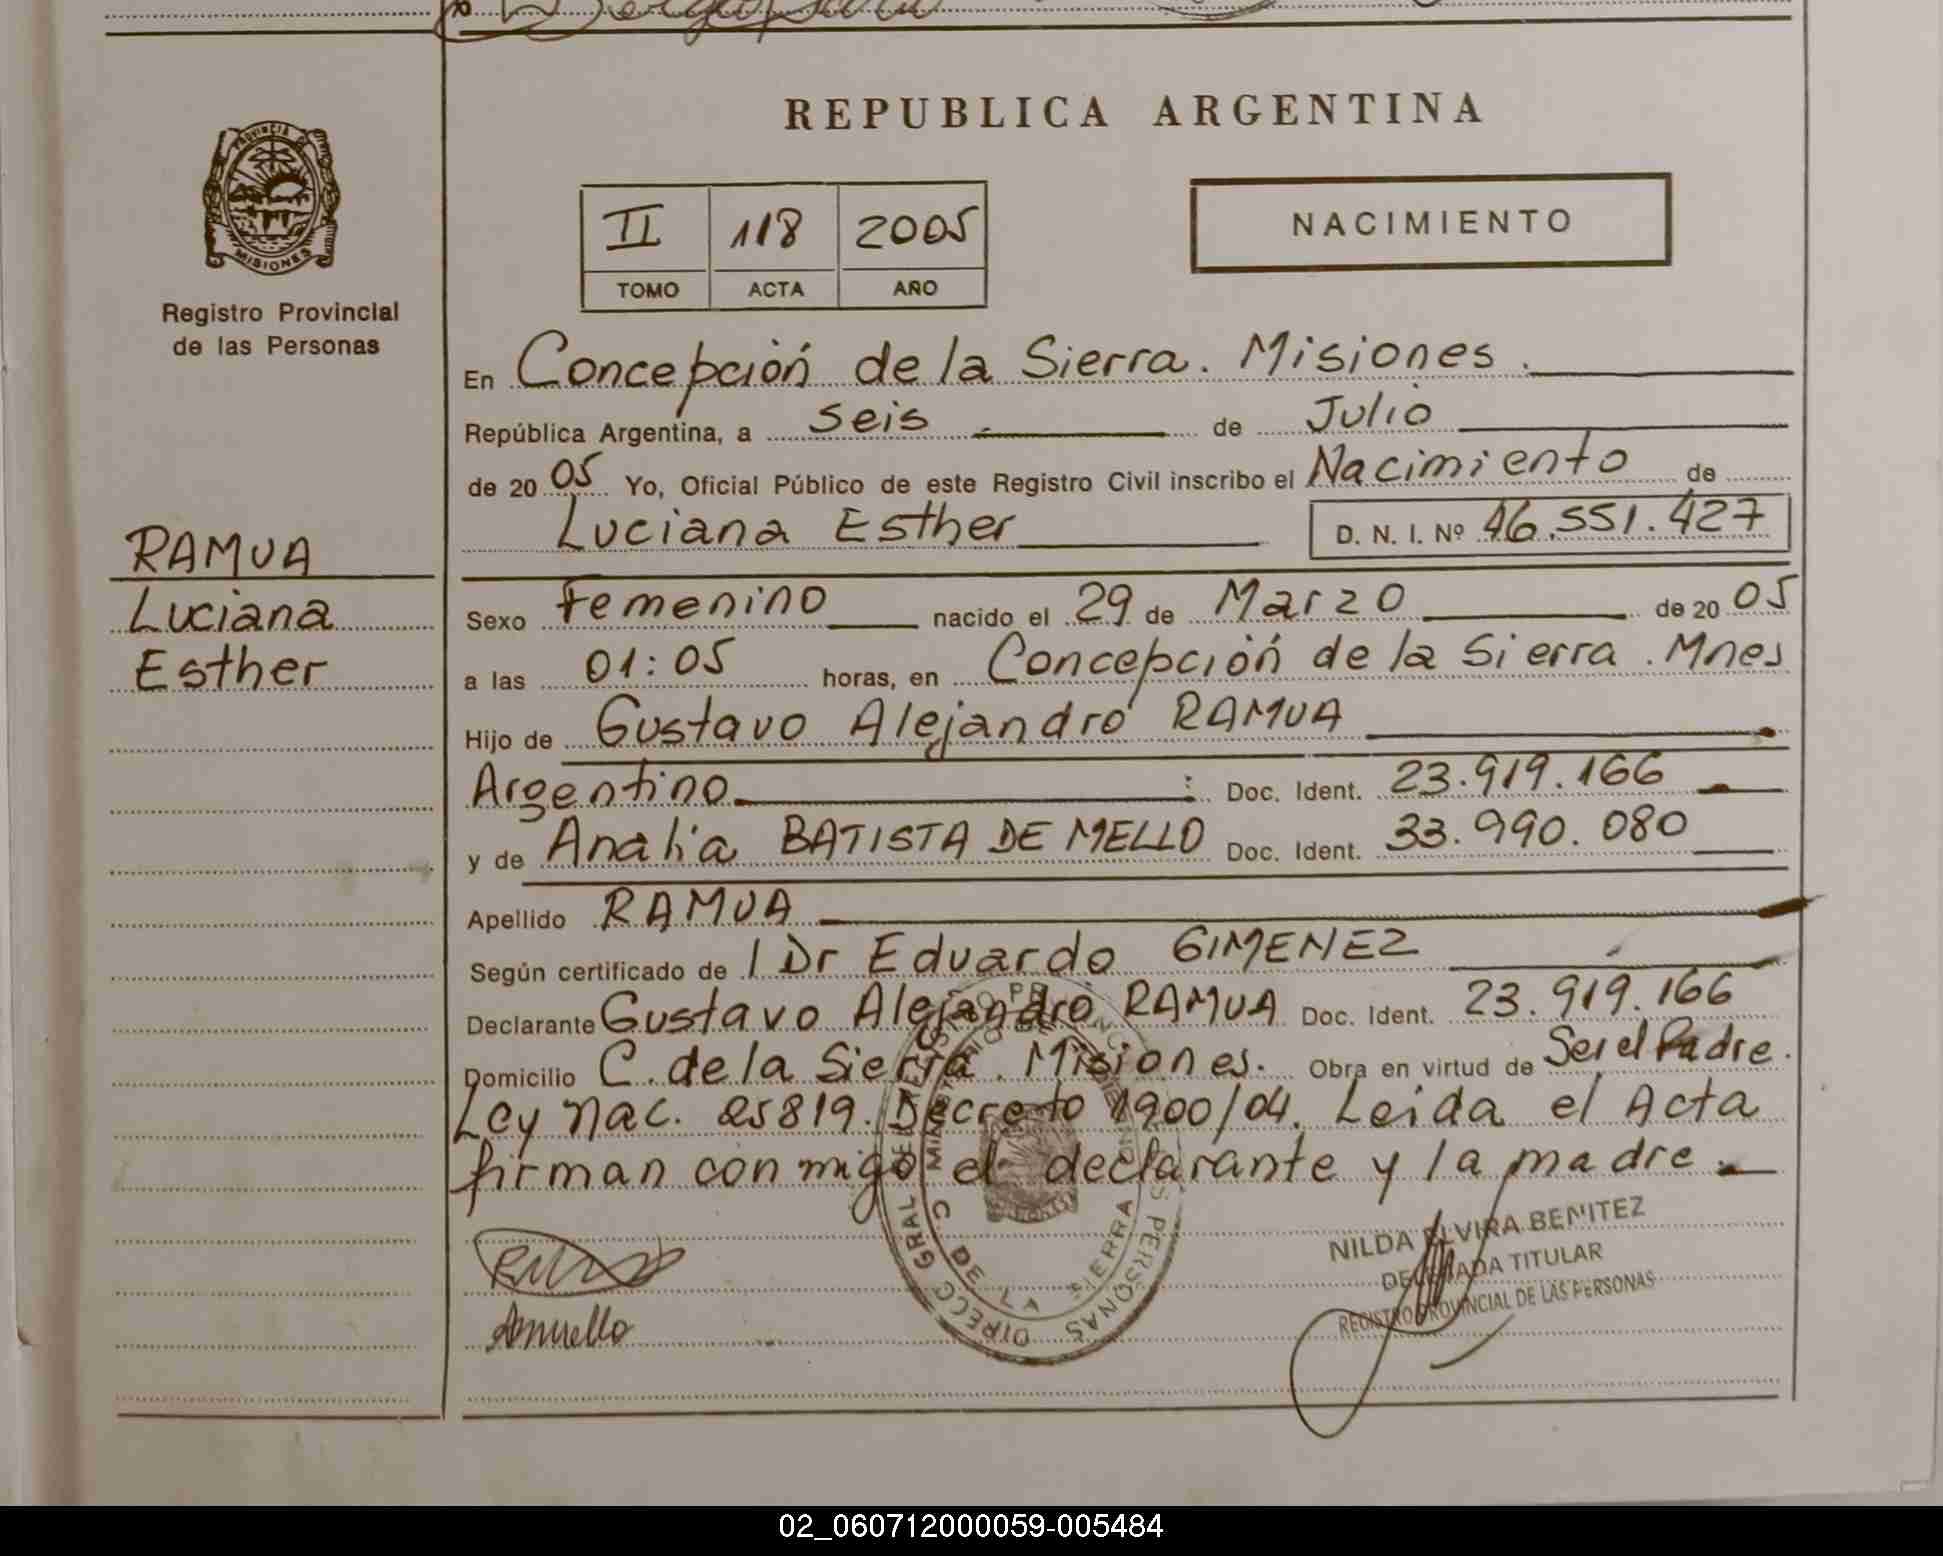 REPUBLICA ARGENTINA
PROVINCIA DE MISIONES
Registro Provincial
de las Personas
II 118 2005
TOMO ACTA AÑO
NACIMIENTO
En Concepción de la Sierra. Misiones.
República Argentina, a seis de Julio
de 2005 Yo, Oficial Público de este Registro Civil inscribo el Nacimiento de
Luciana Esther D. N. I. Nº 46.551.427
RAMUA
Luciana
Esther
Sexo Femenino nacido el 29 de Marzo de 2005
a las 01:05 horas, en Concepción de la Sierra. Mnes
Hijo de Gustavo Alejandro RAMUA
Argentino Doc. Ident. 23.919.166
y de Analia BATISTA DE MELLO Doc. Ident. 33.990.080
Apellido RAMUA
Según certificado de Dr Eduardo GIMENEZ
Declarante Gustavo Alejandro RAMUA Doc. Ident. 23.919.166
Domicilio C. de la Sierra. Misiones. Obra en virtud de Ser el Padre.
Ley Nac. 25819. Decreto 1900/04. Leida el Acta
firman conmigo el declarante y la madre.
NILDA ELVIRA BENITEZ
DELEGADA TITULAR
REGISTRO PROVINCIAL DE LAS PERSONAS
DIRECC GRAL PERSONAS
C. DE LA SIERRA
02_060712000059-005484